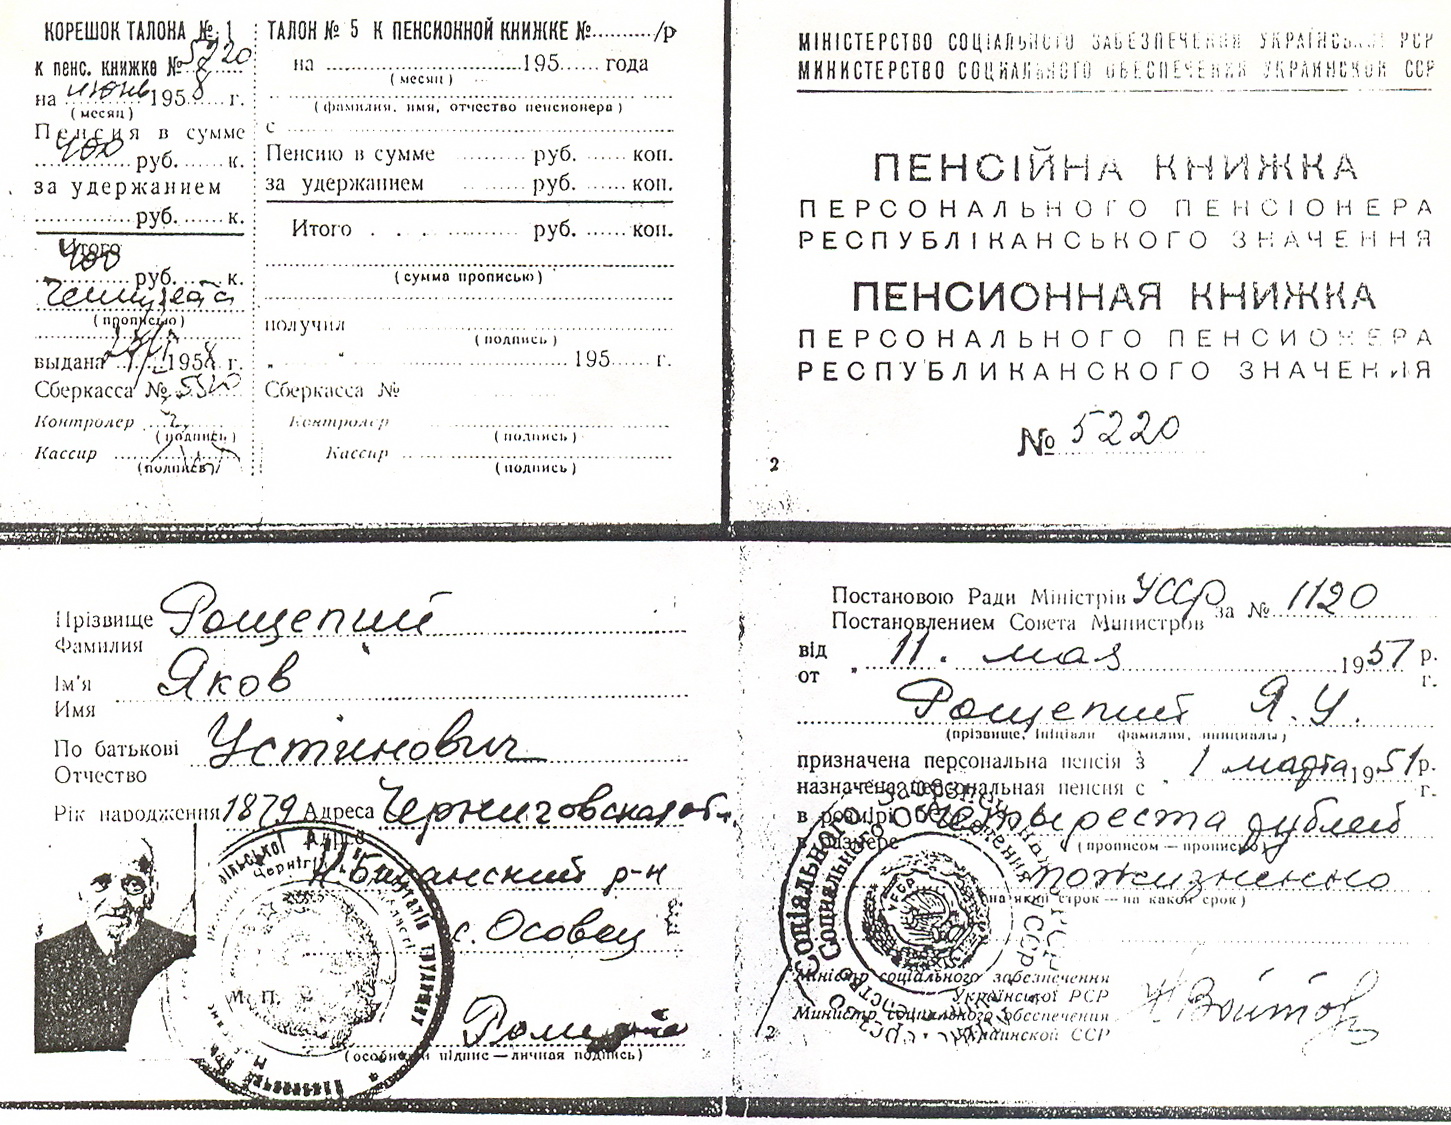 КОРЕШОК ТАЛОНА № 1
к пенс. книжке № 5220
на июнь 1958 г.
(месяц)
Пенсия в сумме
400 руб. ...... к.
за удержанием
............ руб. ...... к.
Итого
400 руб. ...... к.
Четыреста
(прописью)
выдана 1958 г.
Сберкасса № 5320
Контролер
(подпись)
Кассир
(подпись)
ТАЛОН № 5 К ПЕНСИОННОЙ КНИЖКЕ №........../р
на ............................195...... года
(месяц)
(фамилия, имя, отчество пенсионера)
с
Пенсию в сумме .......... руб. ...... коп.
за удержанием .......... руб. ...... коп.
Итого . . .......... руб. ...... коп.
(сумма прописью)
получил
(подпись)
" " 195...... г.
Сберкасса №
Контролер
(подпись)
Кассир
(подпись)
МІНІСТЕРСТВО СОЦІАЛЬНОГО ЗАБЕЗПЕЧЕННЯ УКРАЇНСЬКОЇ РСР
МИНИСТЕРСТВО СОЦИАЛЬНОГО ОБЕСПЕЧЕНИЯ УКРАИНСКОЙ ССР
ПЕНСІЙНА КНИЖКА
ПЕРСОНАЛЬНОГО ПЕНСІОНЕРА
РЕСПУБЛІКАНСЬКОГО ЗНАЧЕННЯ
ПЕНСИОННАЯ КНИЖКА
ПЕРСОНАЛЬНОГО ПЕНСИОНЕРА
РЕСПУБЛИКАНСКОГО ЗНАЧЕНИЯ
№ 5220
2
Прізвище Рощепий
Фамилия
Ім'я Яков
Имя
По батькові Устинович
Отчество
Рік народження 1879 Адреса Черниговская обл.
Адрес
Н-Басанский р-н
с. Осовец
М. П.
(особистий підпис — личная подпись)
Постановою Ради Міністрів УССР за № 1120
Постановлением Совета Министров
від
от " 11. мая 1957 р.
г.
Рощепий Я. У.
(прізвище, ініціали фамилия, инициалы)
призначена персональна пенсія з 1 марта 1951 р.
назначена персональная пенсия с г.
в розмірі Четыреста рублей
в размере (прописом — прописью)
пожизненно
(на який строк — на какой срок)
Міністр соціального забезпечення
Української РСР
Министр социального обеспечения
Украинской ССР
2